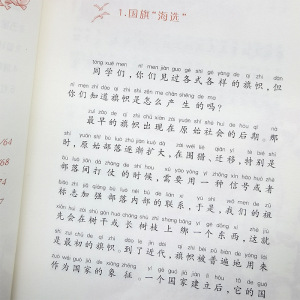 1.国旗“海选”
tóng xué men nǐ men jiàn guò gè shì gè yàng de qí zhì dàn
同学们，你们见过各式各样的旗帜，但
nǐ men zhī dào qí zhì shì zěn me chǎn shēng de ma
你们知道旗帜是怎么产生的吗？
zuì zǎo de qí zhì chū xiàn zài yuán shǐ shè huì de hòu qī nà
最早的旗帜出现在原始社会的后期。那
shí yuán shǐ bù luò zhú jiàn kuò dà zài wéi liè qiān yí tè bié shì
时，原始部落逐渐扩大，在围猎、迁移，特别是
bù luò jiān dǎ zhàng de shí hou xū yào yòng yì zhǒng xìn hào huò zhě
部落间打仗的时候，需要用一种信号或者
biāo zhì jiā qiáng bù luò nèi bù de lián xì yú shì wǒ men de zǔ
标志加强部落内部的联系，于是，我们的祖
xiān huì zài shù gān huò cháng shù zhī shang bǎng yí gè dōng xi zhè jiù
先会在树干或长树枝上绑一个东西，这就
shì zuì chū de qí zhì dào le jìn dài qí zhì bèi pǔ biàn de yòng lái
是最初的旗帜。到了近代，旗帜被普遍地用来
zuò wéi guó jiā de xiàng zhēng yí gè guó jiā jiàn lì hòu tā de guó
作为国家的象征。一个国家建立后，它的国
/64
/68
/74
77